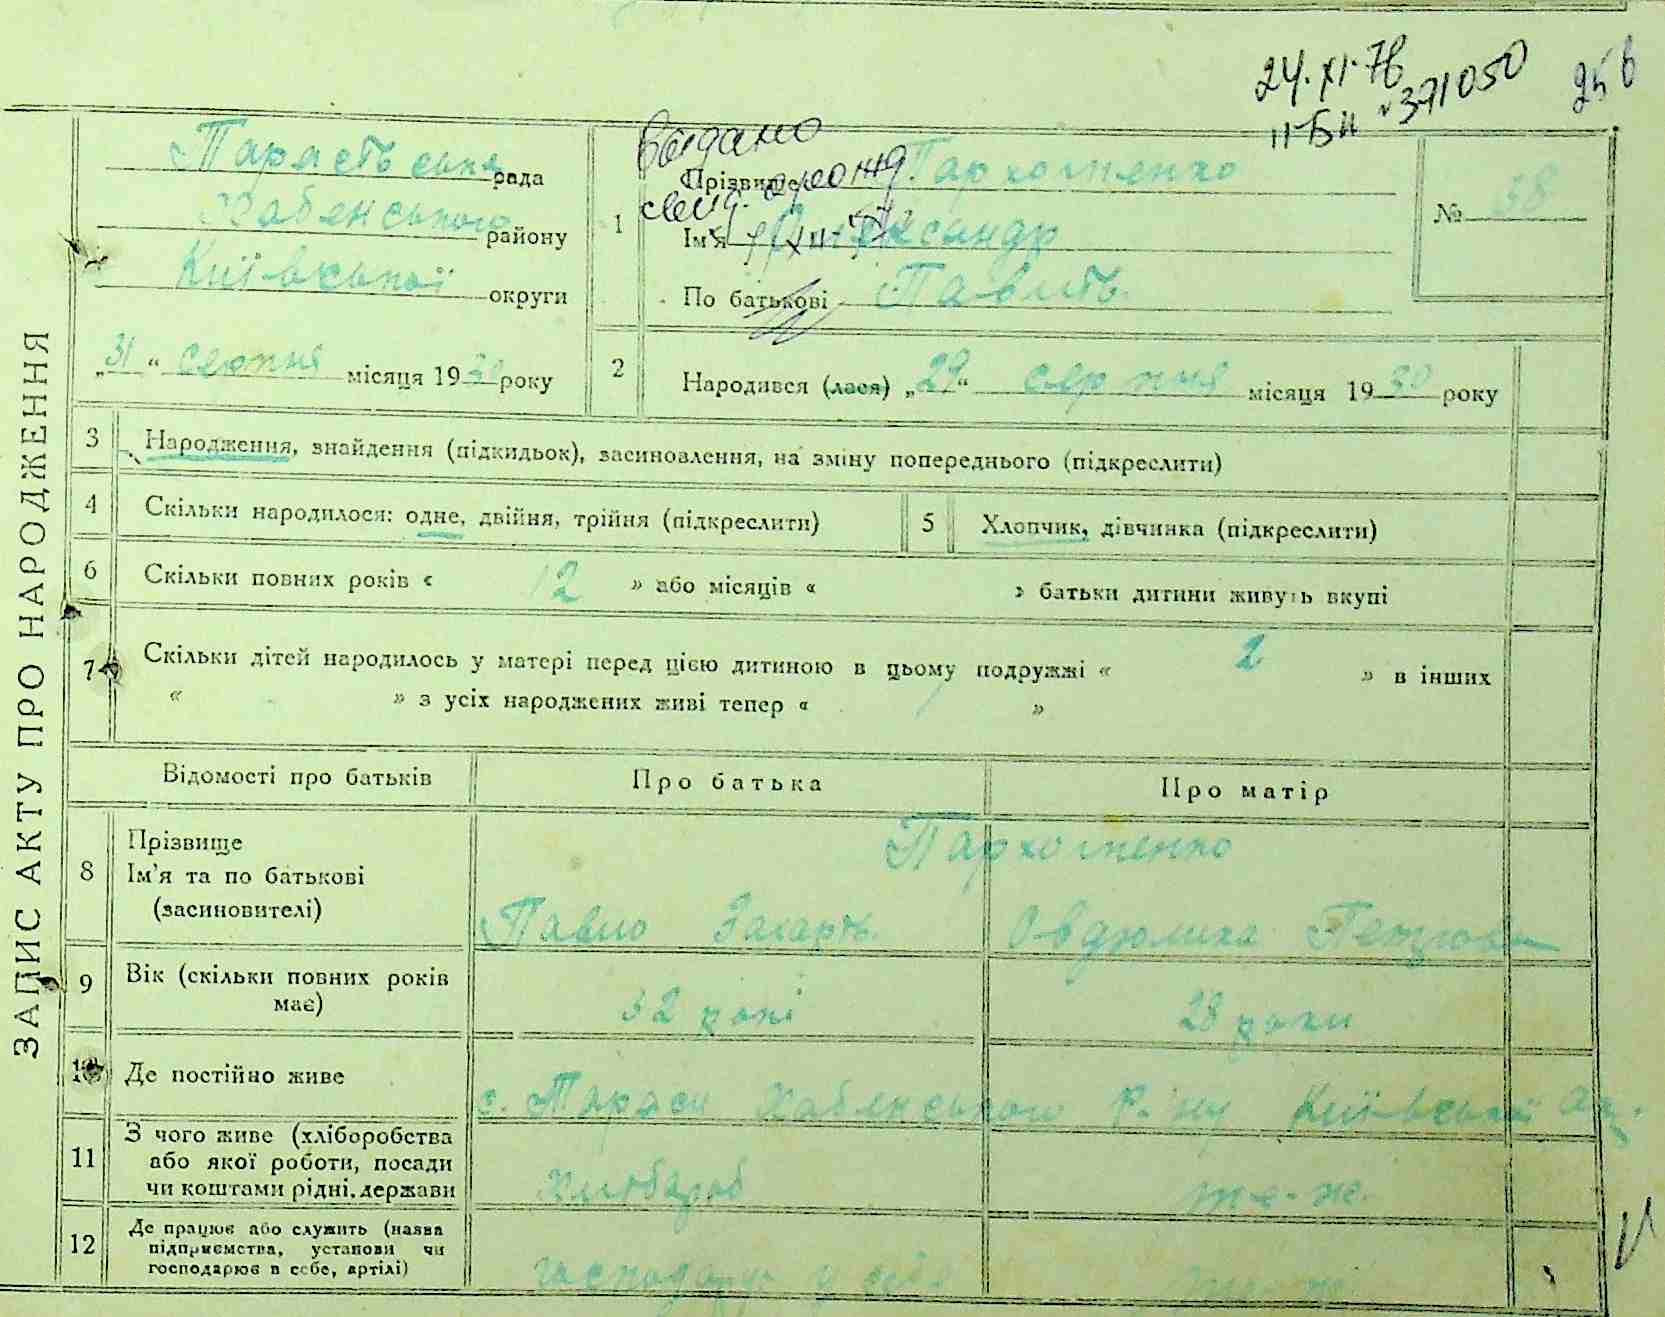 24.XI.78
II-БК №371050
256
Видано
свид. о рожд.
ЗАПИС АКТУ ПРО НАРОДЖЕННЯ
Тараська рада
Хабенського району
Київської округи
„31“ серпня місяця 1930 року
1 Прізвище Пархоменко
Ім'я Олександр
По батькові Павлов.
№ 38
2 Народився (лася) „29“ серпня місяця 1930 року
3 Народження, знайдення (підкидьок), засиновлення, на зміну попереднього (підкреслити)
4 Скільки народилося: одне, двійня, трійня (підкреслити) 5 Хлопчик, дівчинка (підкреслити)
6 Скільки повних років « 12 » або місяців « » батьки дитини живуть вкупі
7 Скільки дітей народилось у матері перед цією дитиною в цьому подружжі « 2 » в інших
« » з усіх народжених живі тепер « »
Відомості про батьків Про батька Про матір
8 Прізвище Пархоменко
Ім'я та по батькові
(засиновителі) Павло Захаров. Овдюшка Петрова
9 Вік (скільки повних років має) 32 рокі 28 роки
10 Де постійно живе с. Тараси Хабенського р-ну Київської ок.
11 З чого живе (хліборобства
або якої роботи, посади
чи коштами рідні, держави хлібороб те-же.
12 Де працює або служить (назва
підприємства, установи чи
господарює в себе, артілі) господарує у себе те-же